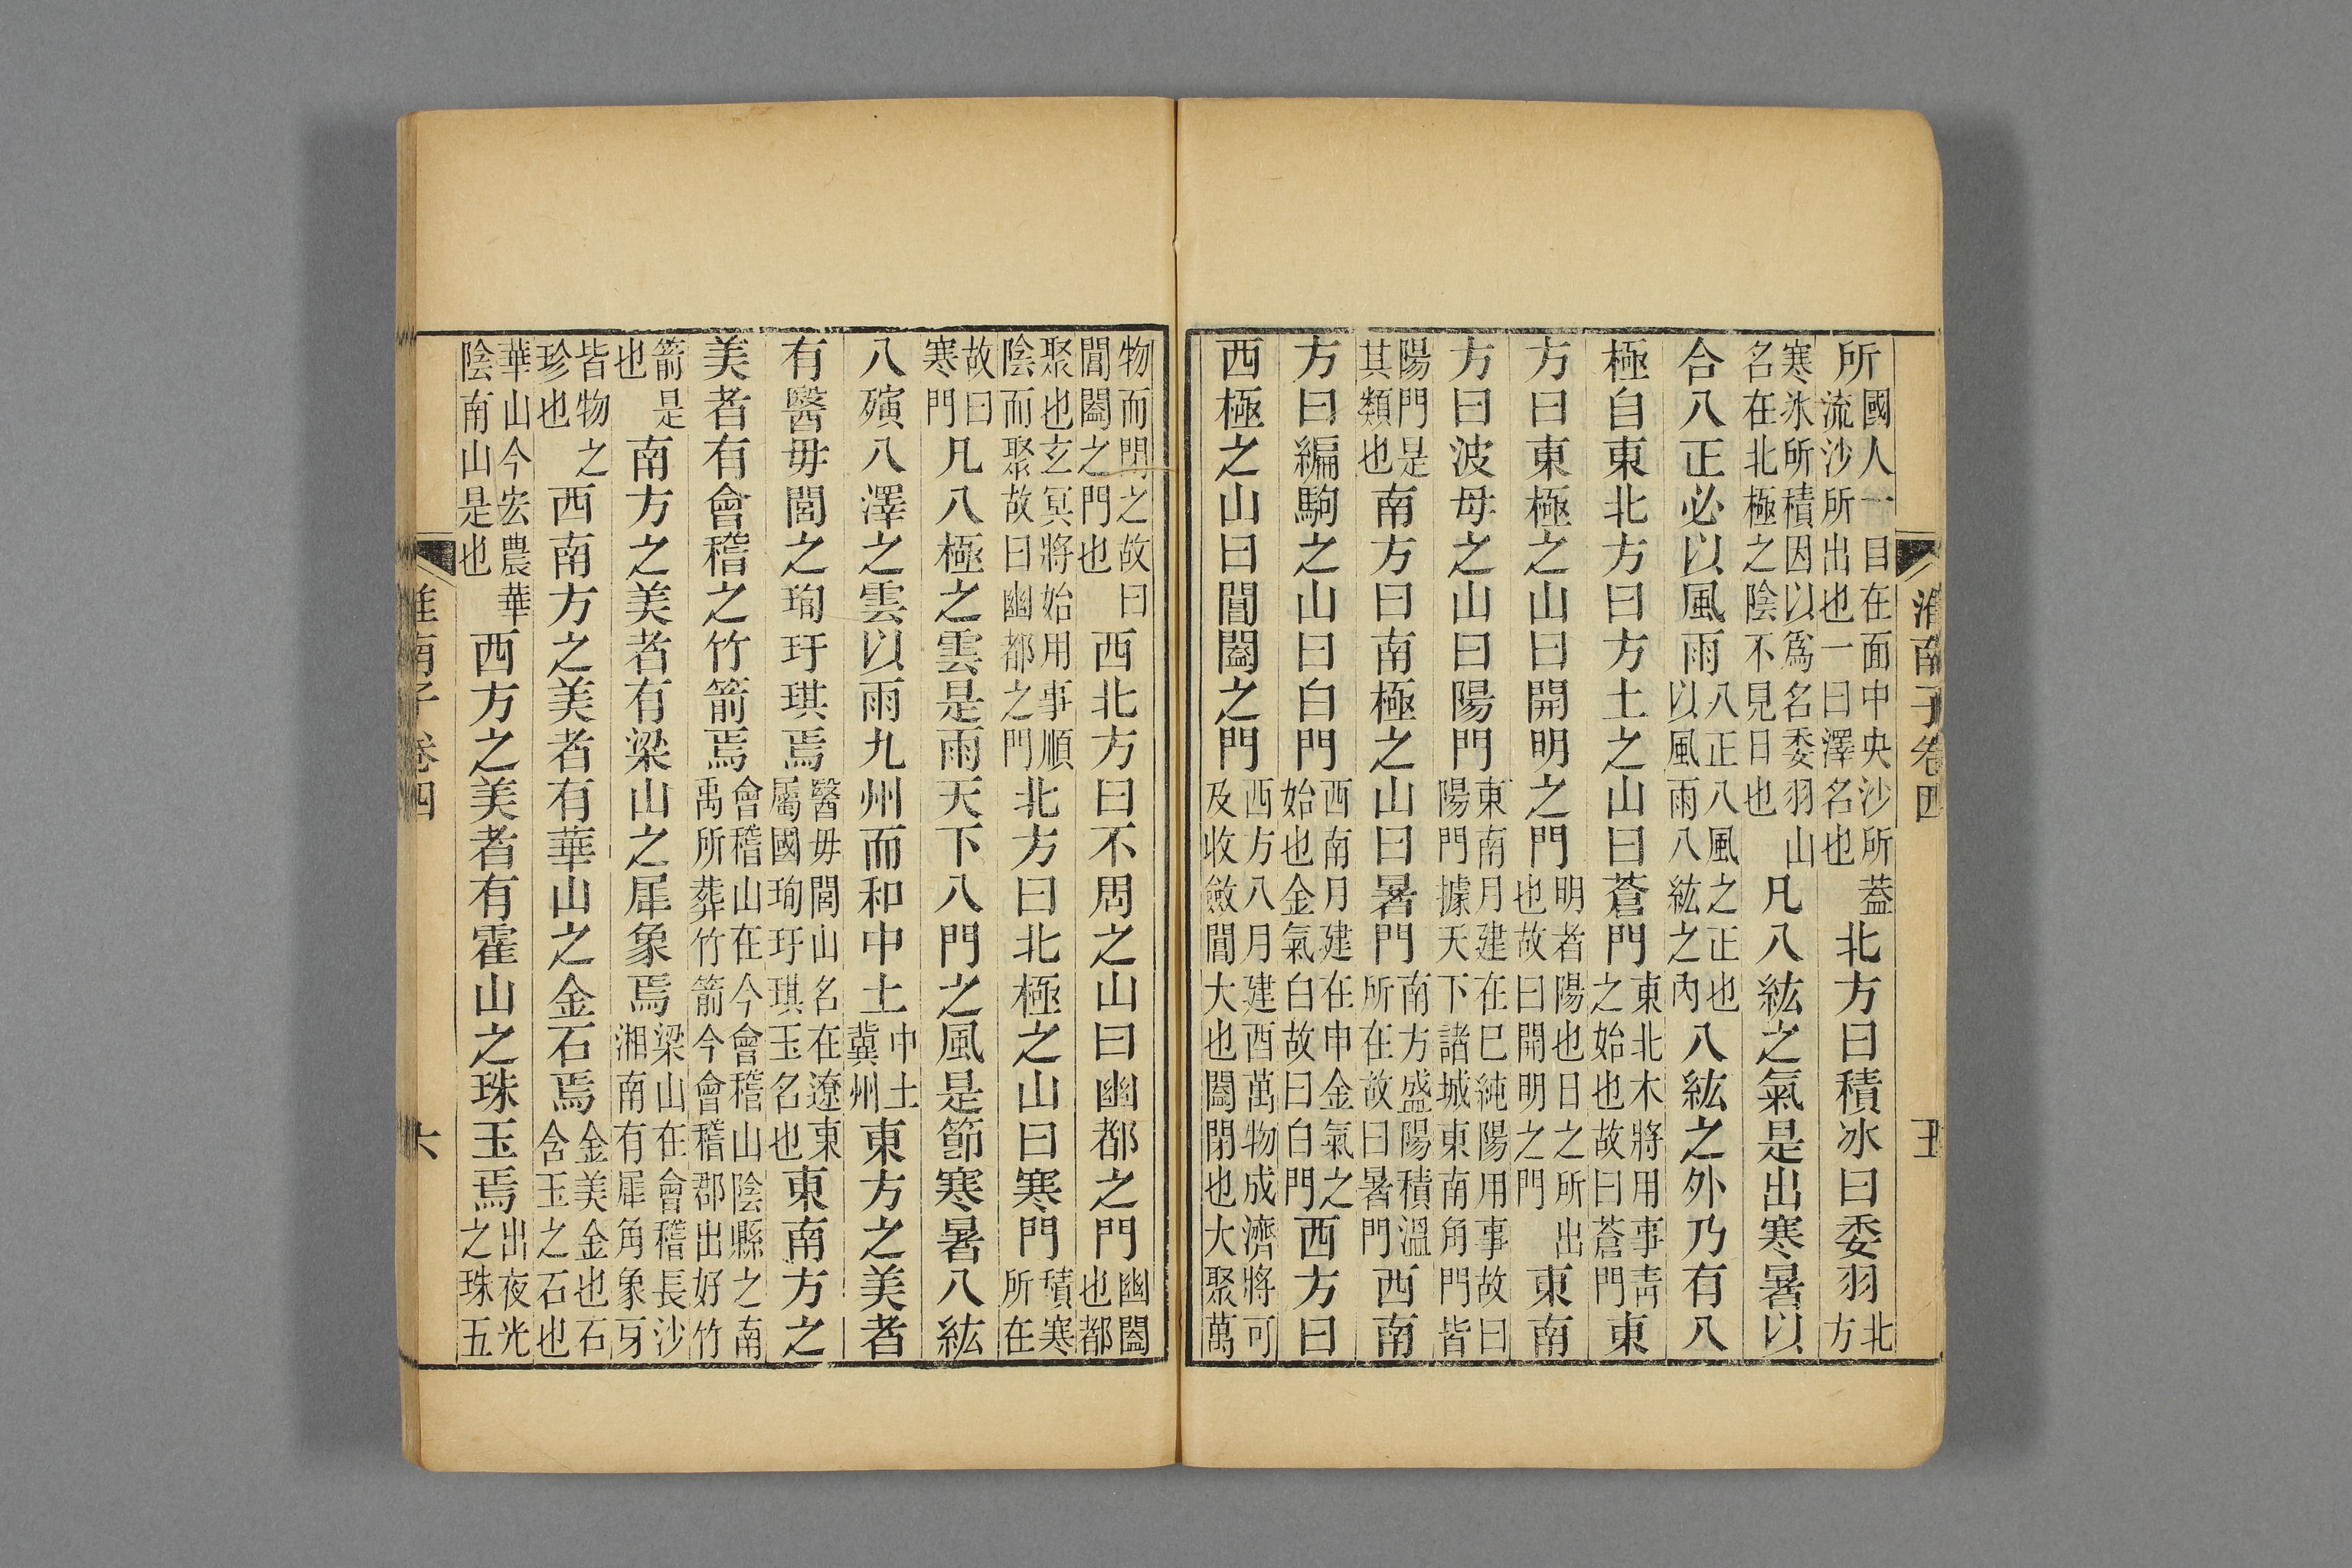 淮南子卷四 五
所國人一目在面中央沙所蓋流沙所出也一曰澤名也北方曰積冰曰委羽北方
寒冰所積因以爲名委羽山名在北極之陰不見日也凡八紘之氣是出寒暑以
合八正必以風雨八正八風之正也以風雨八紘之內八紘之外乃有八
極自東北方曰方土之山曰蒼門東北木將用事靑之始也故曰蒼門東
方曰東極之山曰開明之門明者陽也日之所出也故曰開明之門東南
方曰波母之山曰陽門東南月建在巳純陽用事故曰陽門據天下諸城東南角門皆
陽門是其類也南方曰南極之山曰暑門南方盛陽積溫所在故曰暑門西南
方曰編駒之山曰白門西南月建在申金氣之始也金氣白故曰白門西方曰
西極之山曰閶闔之門西方八月建酉萬物成濟將可及收斂閶大也闔閉也大聚萬
物而閉之故曰閶闔之門也西北方曰不周之山曰幽都之門幽闔也都
聚也玄冥將始用事順陰而聚故曰幽都之門北方曰北極之山曰寒門積寒所在
故曰寒門凡八極之雲是雨天下八門之風是節寒暑八紘
八殥八澤之雲以雨九州而和中土中土冀州東方之美者
有醫毋閭之珣玗琪焉醫毋閭山名在遼東屬國珣玗琪玉名也東南方之
美者有會稽之竹箭焉會稽山在今會稽山陰縣之南禹所葬竹箭今會稽郡出好竹
箭是也南方之美者有梁山之犀象焉梁山在會稽長沙湘南有犀角象牙
皆物之珍也西南方之美者有華山之金石焉金美金也石含玉之石也
華山今宏農華陰南山是也西方之美者有霍山之珠玉焉出夜光之珠五
淮南子 卷四 六